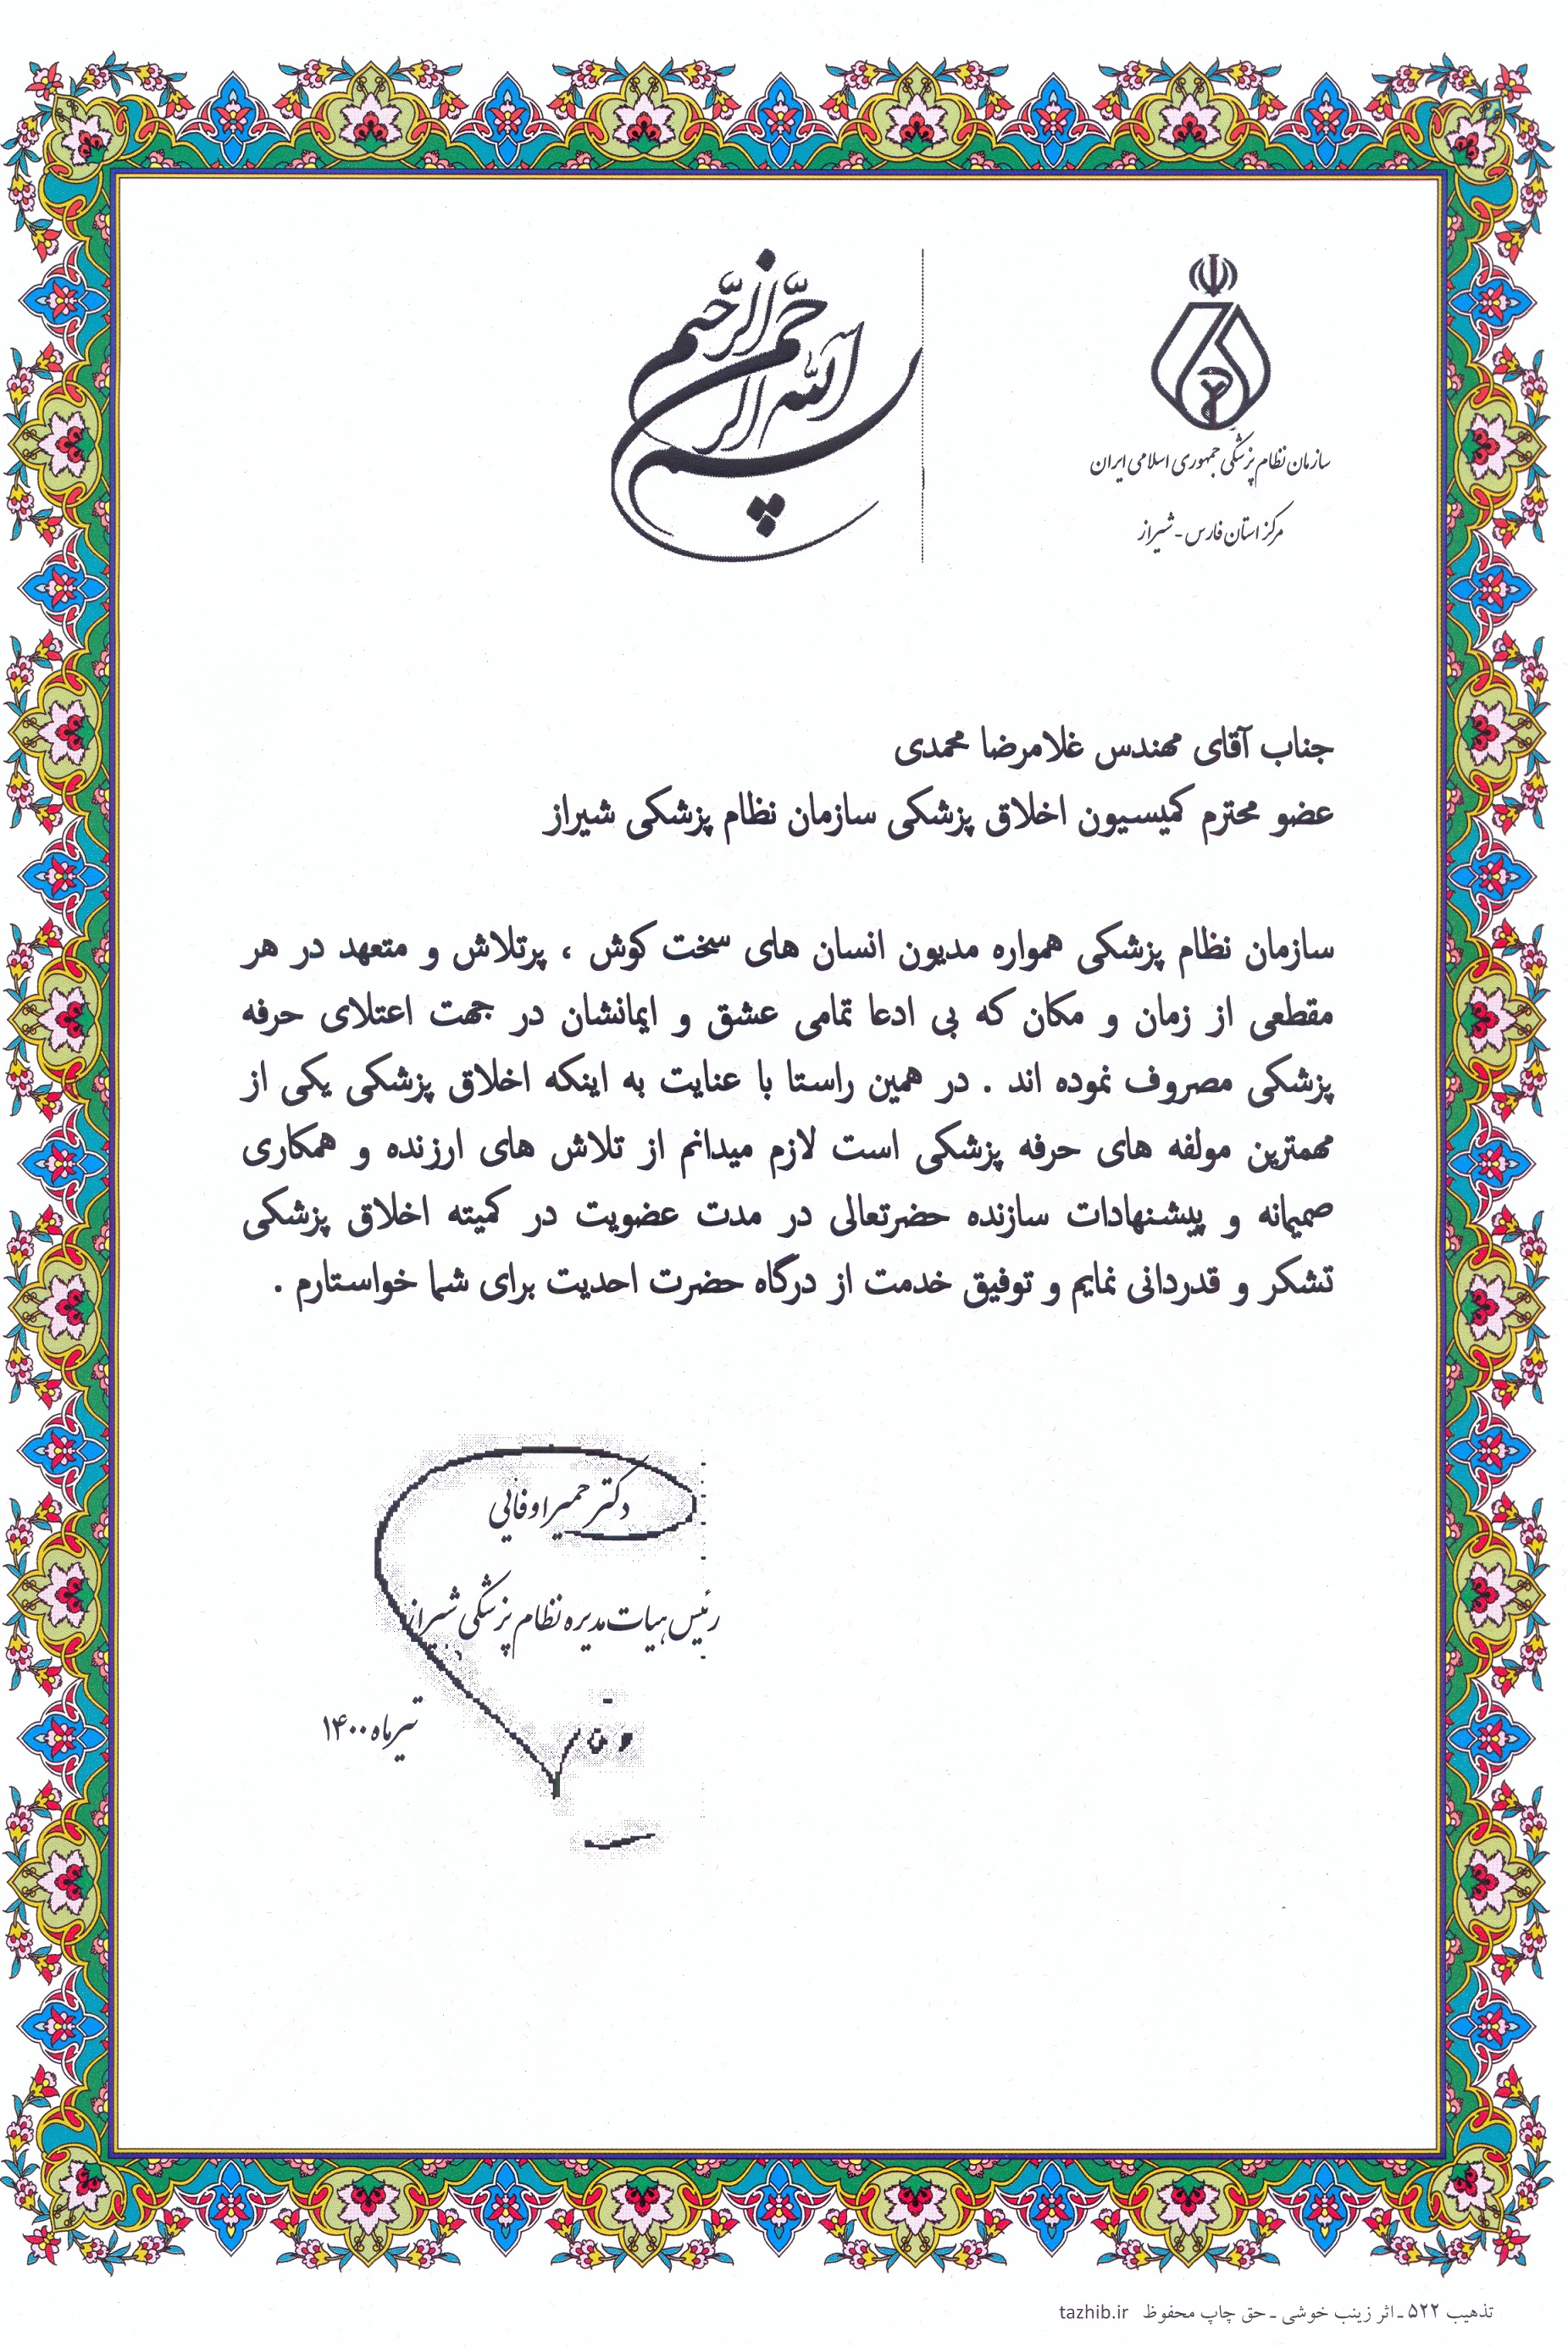 بسم الله الرحمن الرحیم
سازمان نظام پزشکی جمهوری اسلامی ایران
مرکز استان فارس - شیراز
جناب آقای مهندس غلامرضا محمدی
عضو محترم کمیسیون اخلاق پزشکی سازمان نظام پزشکی شیراز
سازمان نظام پزشکی همواره مدیون انسان های سخت کوش ، پرتلاش و متعهد در هر
مقطعی از زمان و مکان که بی ادعا تمامی عشق و ایمانشان در جهت اعتلای حرفه
پزشکی مصروف نموده اند . در همین راستا با عنایت به اینکه اخلاق پزشکی یکی از
مهمترین مولفه های حرفه پزشکی است لازم میدانم از تلاش های ارزنده و همکاری
صمیمانه و پیشنهادات سازنده حضرتعالی در مدت عضویت در کمیته اخلاق پزشکی
تشکر و قدردانی نمایم و توفیق خدمت از درگاه حضرت احدیت برای شما خواستارم .
دکتر حمیرا وفائی
رئیس هیات مدیره نظام پزشکی شیراز
تیر ماه ۱۴۰۰
تذهیب ۵۲۲ ـ اثر زینب خوشی ـ حق چاپ محفوظ tazhib.ir